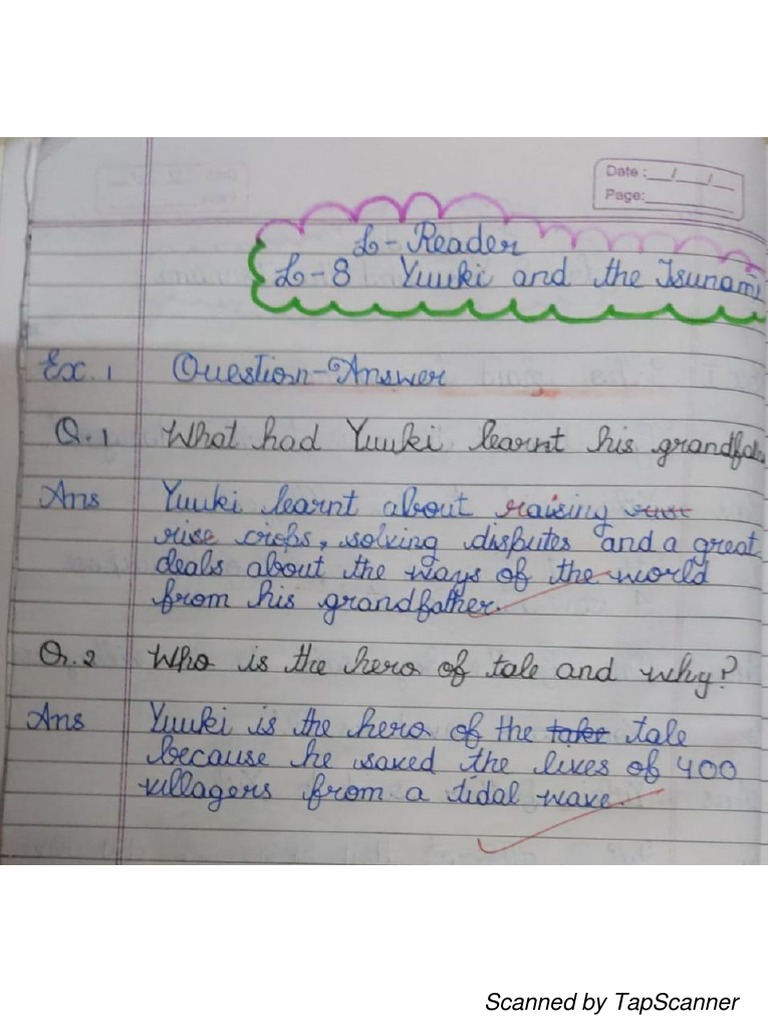 Date :__/__/__
Page:
L- Reader
L-8 Yuuki and the Tsunami
Ex. 1 Question-Answer
Q.1 What had Yuuki learnt his grandfa
Ans Yuuki learnt about raising rust
rise crops, solving disputes and a great
deals about the ways of the world
from his grandfather.
Q.2 Who is the hero of tale and why?
Ans Yuuki is the hero of the take tale
because he saved the lives of 400
villagers from a tidal wave.
Scanned by TapScanner